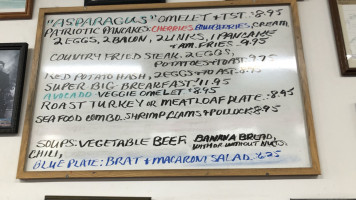 "ASPARAGUS" OMELET & TST. :8.95
PATRIOTIC PANCAKES: CHERRIES, BLUEBERRIES, CREAM
2 EGGS, 2 BACON, 2 LINKS, 1 PANCAKE
& AM. FRIES. 9.95
COUNTRY FRIED STEAK, 2 EGGS,
POTATOES & TOAST 9.75
RED POTATO HASH, 2 EGGS & TOAST
SUPER BIG BREAKFAST! 11.95
AVOCADO-VEGGIE OMELET :8.95
ROAST TURKEY OR MEATLOAF PLATE :8.95
SEAFOOD COMBO. SHRIMP, CLAMS & POLLOCK 8.95
SOUPS: VEGETABLE BEEF, BANANA BREAD,
WITH OR WITHOUT NUTS.
CHILI,
BLUE PLATE: BRAT & MACARONI SALAD :6.25